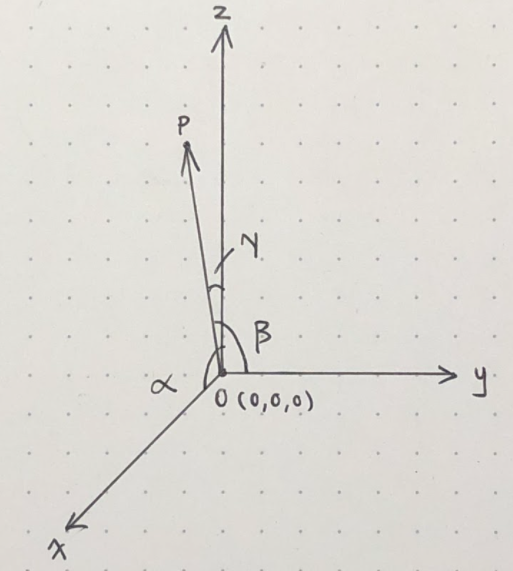 z
P
γ
β
α
y
O (0,0,0)
x